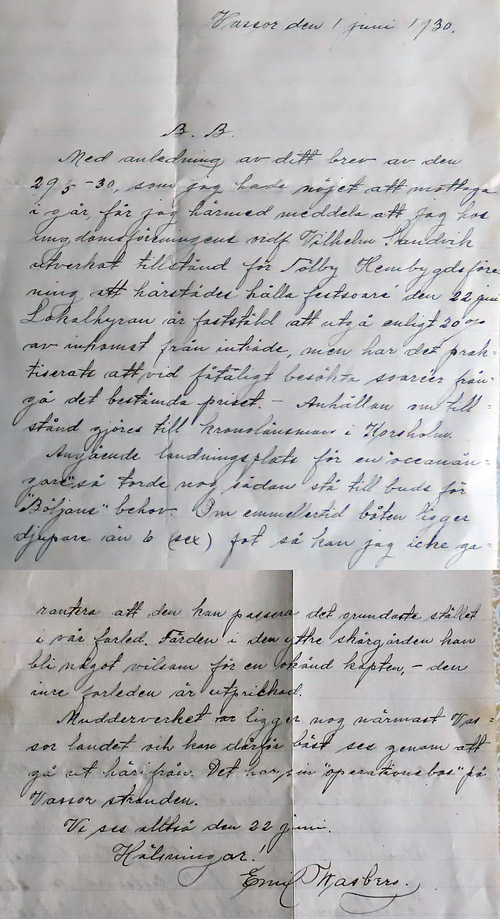 Vassor den 1 juni 1930.
B. B.
Med anledning av ditt brev av den
29/5-30, som jag hade nöjet att mottaga
i går, får jag härmed meddela att jag hos
ungdomsföreningens ordf Vilhelm Sandvik
utverkat tillstånd för Tölby Hembygdsföre
ning att härstädes hålla festsoaré den 22 juni
Lokalhyran är fastställd att utgå enligt 20%
av inkomst från inträde, men har det prak-
tiserats att vid fåtaligt besökta soaréer från-
gå det bestämda priset. - Anhållan om till-
stånd gjöres till kronolänsman i Korsholm.
Angående landningsplats för en "oceanån-
gare" så torde nog sådan stå till buds för
"Böljans" behov. Om emmellertid båten ligger
djupare än 6 (sex) fot så kan jag icke ga-
rantera att den kan passera det grundaste stället
i vår farled. Färden i den yttre skärgården kan
bli något vilsam för en okänd kapten, - den
inre farleden är utprickad.
Mudderverket var ligger nog närmast Vas-
sor landet och kan därför bäst ses genom att
gå ut härifrån. Det har sin "operationsbas" på
Vassor stranden.
Vi ses alltså den 22 juni.
Hälsningar!
Emil